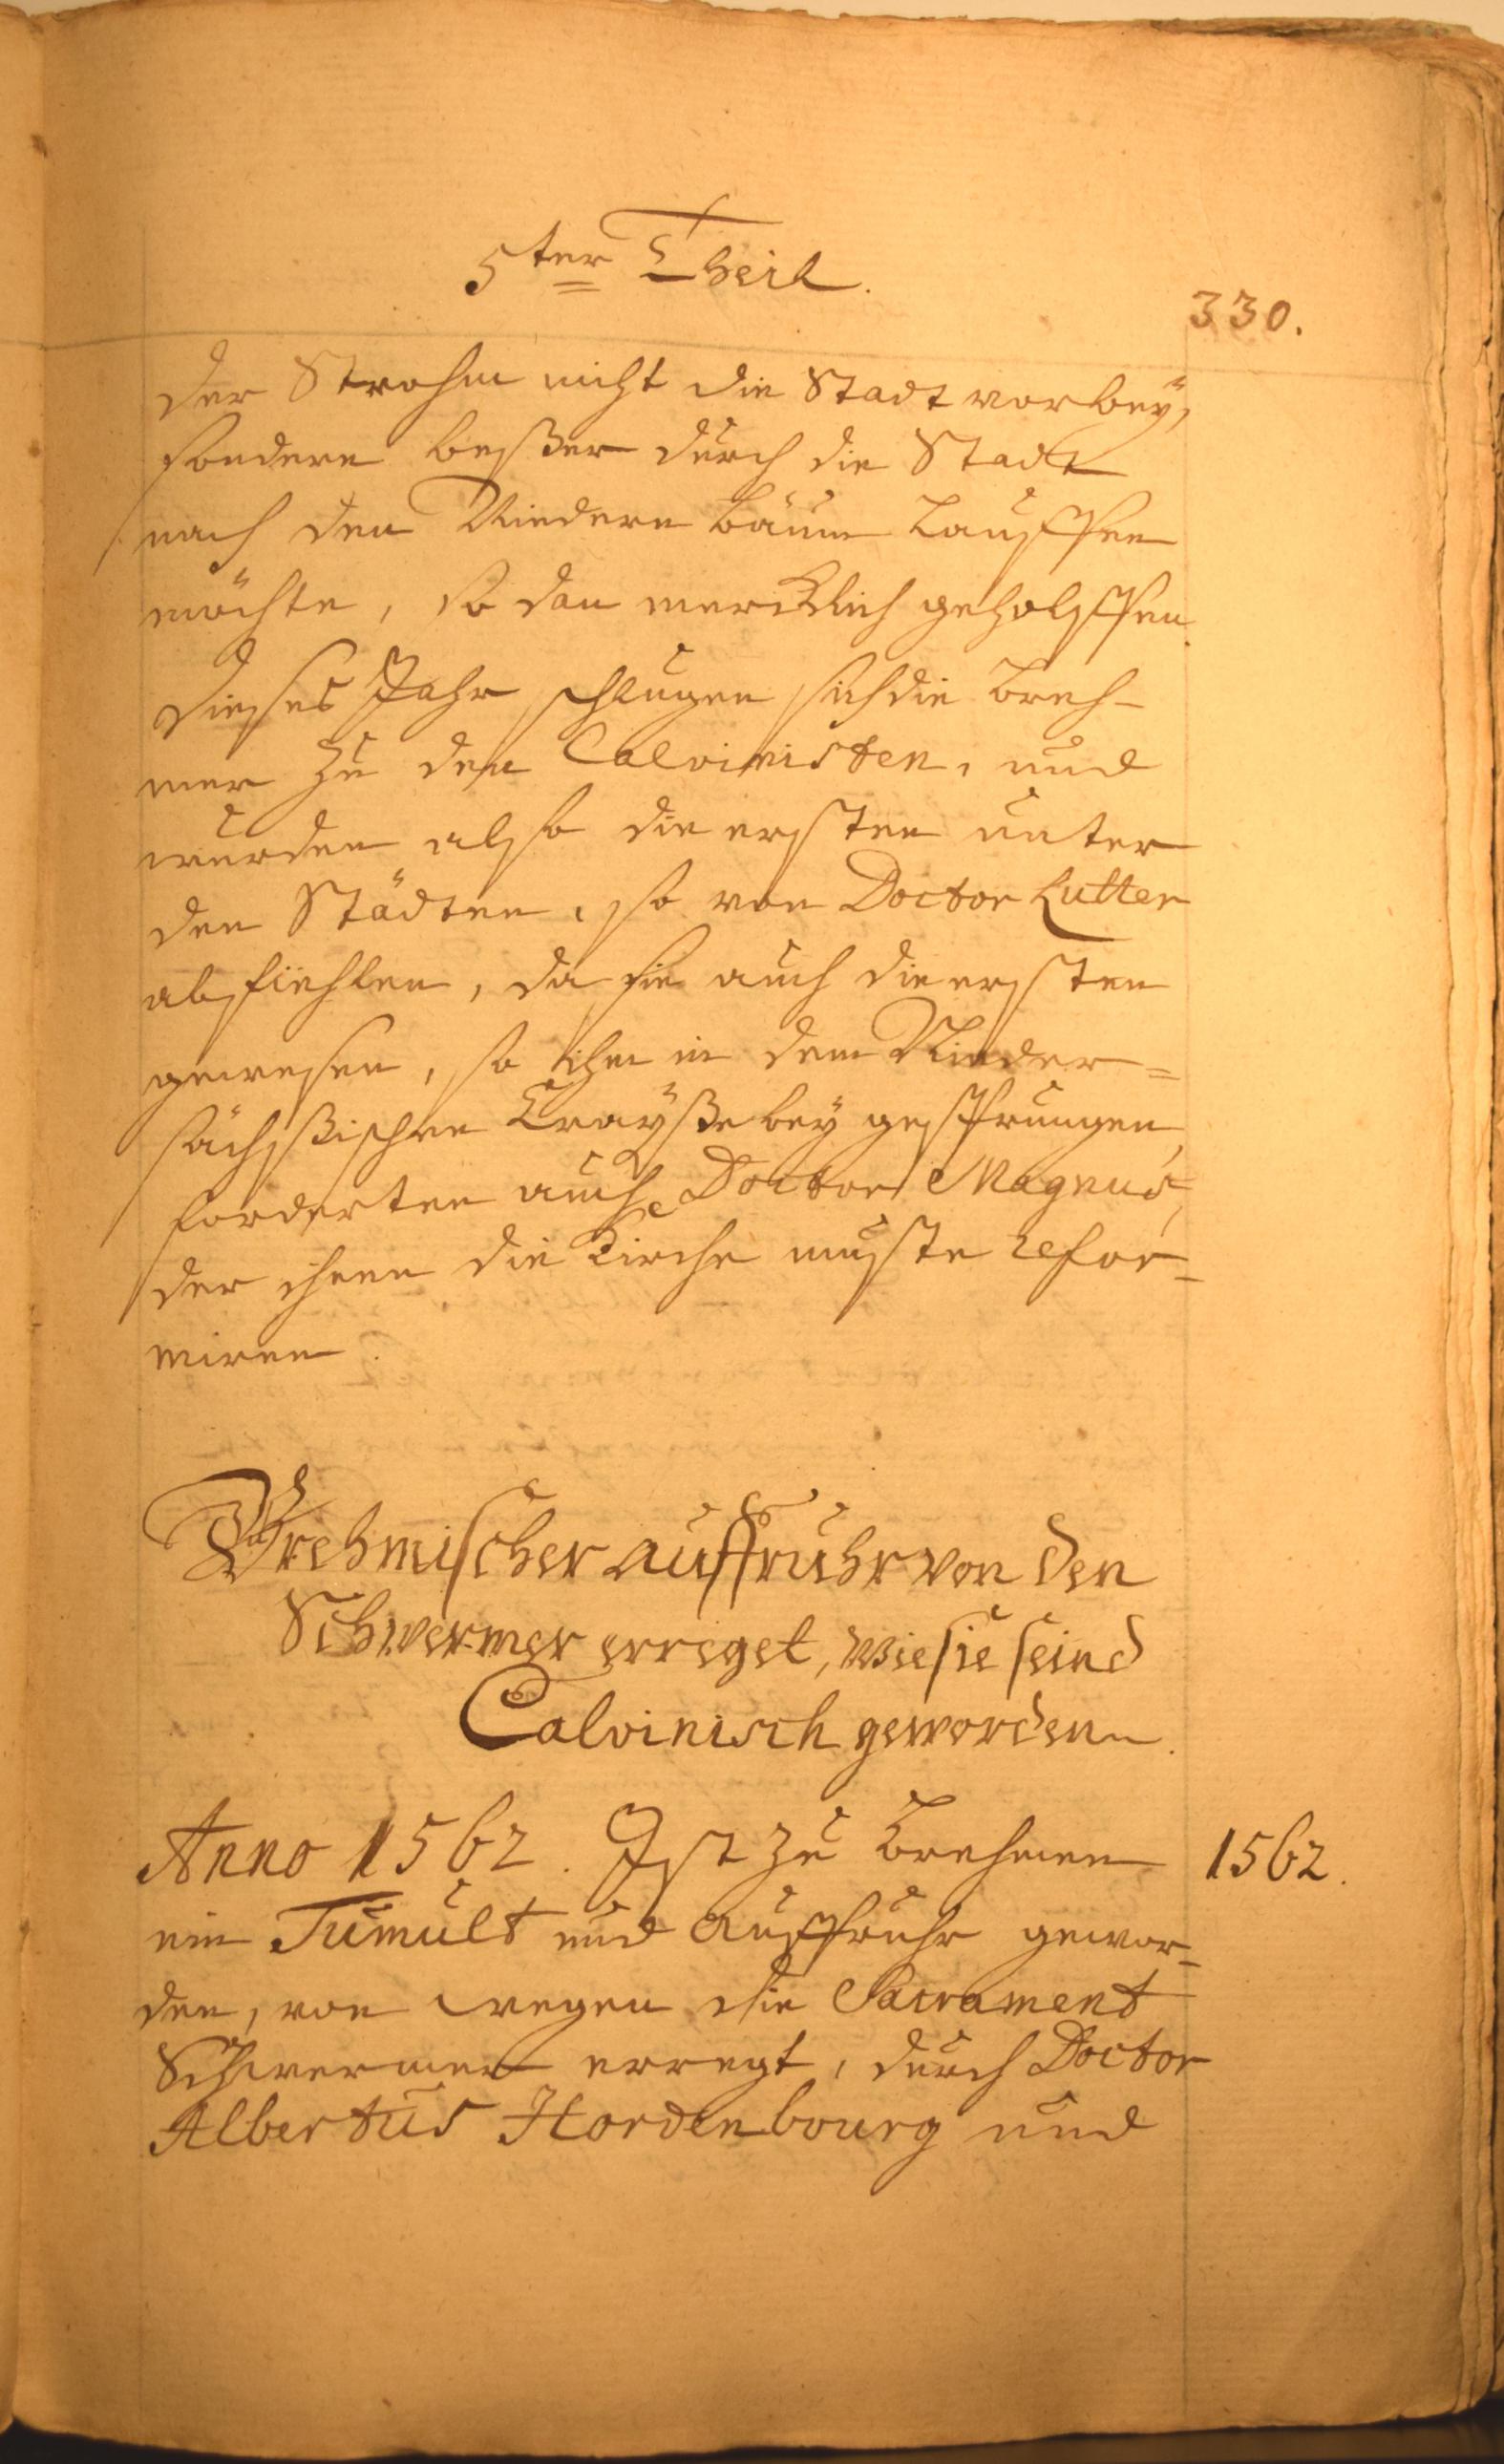 5ter Theil.
330.
der Strohm nicht die Stadt vorbeÿ,
sondern beßer durch die Stadt
nach den Niedern bäum lauffen
möchte, so dan mercklich geholffen.
Dieses Jahr schlugen sich die Breh-
mer zu den Calvinisten, und
wurden also die ersten unter
den Städten, so von Doctor Lutter
abfiehlen, da sie auch die ersten
gewesen, so ihm in dem Nieder=
sächsßischen Crayße beÿ gesprungen,
forderten auch Doctor Magnus,
der ihnen die Kirche muste refor-
miren.
Brehmischer auffruhr von den
Schwermer erreget, wie sie seind
Calvinisch geworden.
Anno 1562. Ist zu Brehmen
1562.
ein Tumult und Auffruhr gewor-
den, von wegen die Sacrament
Schwermer erregt, durch Doctor
Albertus Hordenbourg und